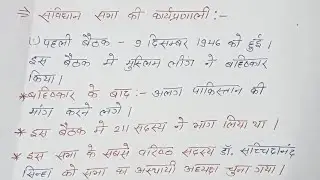 ⇒ संविधान सभा की कार्यप्रणाली :-
(i) पहली बैठक - 9 दिसम्बर 1946 को हुई।
इस बैठक में मुस्लिम लीग ने बहिष्कार
किया।
* बहिष्कार के बाद :- अलग पाकिस्तान की
मांग करने लगे।
* इस बैठक में 211 सदस्य ने भाग लिया था।
* इस सभा के सबसे वरिष्ठ सदस्य डॉ. सच्चिदानंद
सिन्हा को सभा का अस्थायी अध्यक्ष चुना गया।